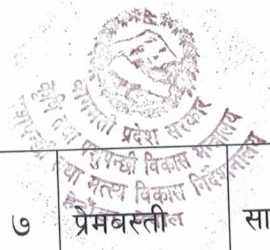 बागमती प्रदेश सरकार
कृषि तथा पशुपन्छी विकास मन्त्रालय
पशुपन्छी तथा मत्स्य विकास निर्देशनालय
७ प्रेमबस्ती सा